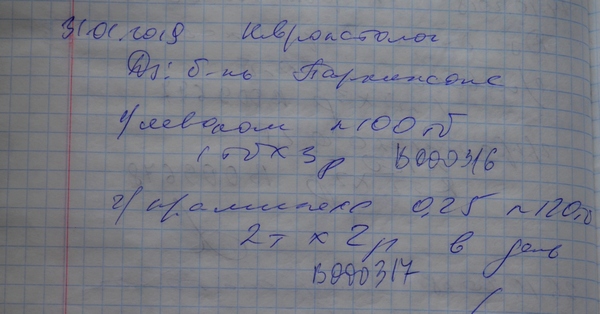 31.01.2019 Невропатолог
Ds: б-нь Паркинсона
1/ левоком N100 тб
1 тб х 3 р В000316
2/ прамипекс 0,25 N120 тб
2т х 2р в день
В000317